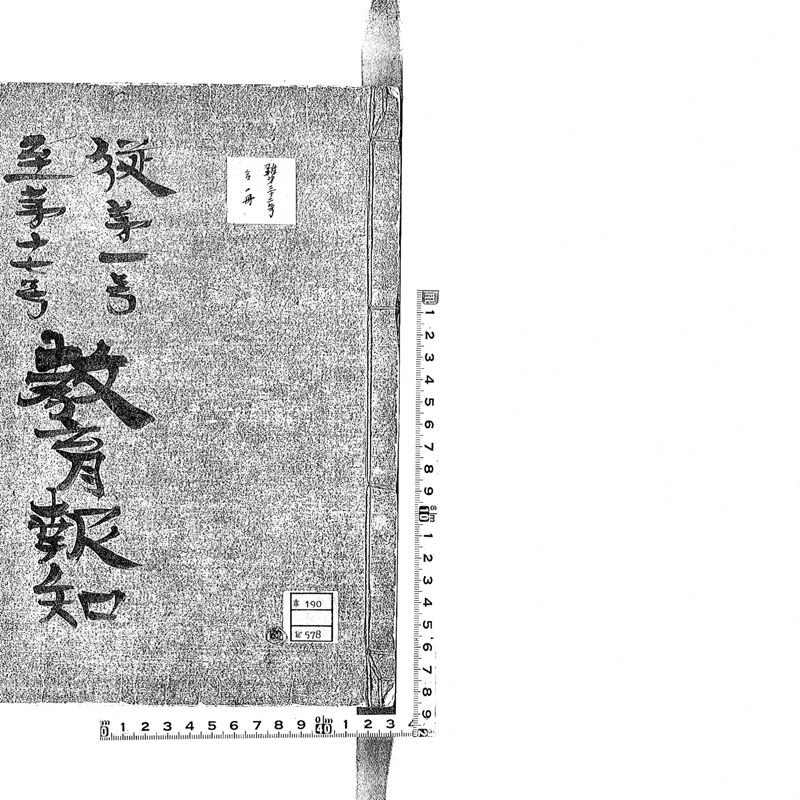 從第一号
至第十七号
教育報知
雑第三十二号
合一冊
本 190
記 578
1 2 3 4 5 6 7 8 9 10 1 2 3 4 5 6 7 8 9
0 1 2 3 4 5 6 7 8 9 1 2 3